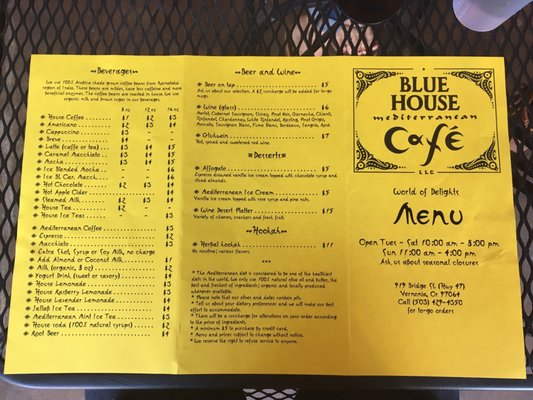 Beverages
We use 100% Arabica shade grown coffee beans from Karnataka
region of India. These beans are milder, have less caffeine and more
beneficial enzymes. The coffee beans are roasted in house. We use
organic milk, and brown sugar in our beverages.
8 oz 12 oz 16 oz
House Coffee $1 $2 $3
Americano $2 $3 $4
Cappuccino - $3 -
Breve - $4 -
Latte (caffe or tea) $3 $4 $5
Caramel Macchiato $3 $4 $5
Mocha $3 $4 $5
Ice Blended Mocha - - $6
Ice Bl. Car. Macch. - - $6
Hot Chocolate $2 $3 $4
Hot Apple Cider - - $4
Steamed Milk $2 $3 $4
House Tea $2 - -
House Iced Teas - - $3
Mediterranean Coffee $3
Espresso $2
Macchiato $3
Extra Shot, Syrup or Soy Milk, no charge
Add Almond or Coconut Milk $1
Milk (organic, 8 oz) $2
Yogurt Drink (sweet or savory) $4
House Lemonade $3
House Raspberry Lemonade $3
House Lavender Lemonade $4
Jallab Iced Tea $4
Mediterranean Mint Ice Tea $3
House soda (100% natural syrups) $2
Root Beer $4
Beer and Wine
Beer on tap $5
Ask about our selection. A $2 surcharge will be added for to-go
mugs.
Wine (glass) $6
Merlot, Cabernet Sauvignon, Shiraz, Pinot Noir, Garnacha, Chianti,
Zinfandel, Chardonnay, White Zinfandel, Riesling, Pinot Grigio,
Moscato, Sauvignon Blanc, Fume Blanc, Bordeaux, Sangria, Rosé
Gluhwein $7
Hot, spiced and sweetened red wine.
Desserts
Affogato $5
Vanilla ice cream and espresso topped with chocolate syrup and
sliced almonds.
Mediterranean Ice Cream $5
Vanilla ice cream topped with rose syrup and pine nuts.
Wine Desert Platter $15
Variety of cheeses, crackers and fresh fruit.
Hookah
Herbal hookah $11
No nicotine; various flavors.
* The Mediterranean diet is considered to be one of the healthiest
diets in the world. We only use 100% natural olive oil and butter, the
best and freshest of ingredients; organic and locally produced
whenever available.
* Please note that our olives and dates contain pits.
* Tell us about your dietary preferences and we will make our best
effort to accommodate.
* There will be a surcharge for alterations on your order according
to the price of ingredients.
* A minimum $5 to purchase by credit card.
* Menu and prices subject to change without notice.
* We reserve the right to refuse service to anyone.
BLUE
HOUSE
mediterranean
Café
LLC
World of Delights
Menu
Open Tues - Sat 10:00 am - 8:00 pm
Sun 11:00 am - 4:00 pm
Ask us about seasonal closures
919 Bridge St (Hwy 47)
Vernonia, Or 97064
Call (503) 429-4350
for to-go orders